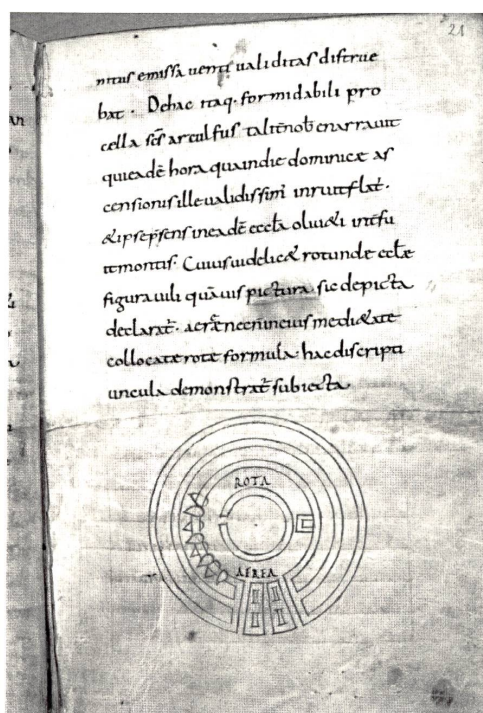 21
nitus emissa uenti ualiditas distrue
bat. Dehac itaq. formidabili pro
cella scs arculfus talit nob enarrauit
quieadē hora quaindie dominicæ as
censionis ille ualidissim' inruit flat'.
&ipse psens ineadē eccla oliu&i intfu
it montis. Cuius uidelic& rotunde ecclæ
figura uili quāuis pictura sic depicta
declarat'. aeræ necn ineius medi&ate
collocatæ rotæ formula hac discripti
uncula demonstrat' subiecta
ROTA
AEREA